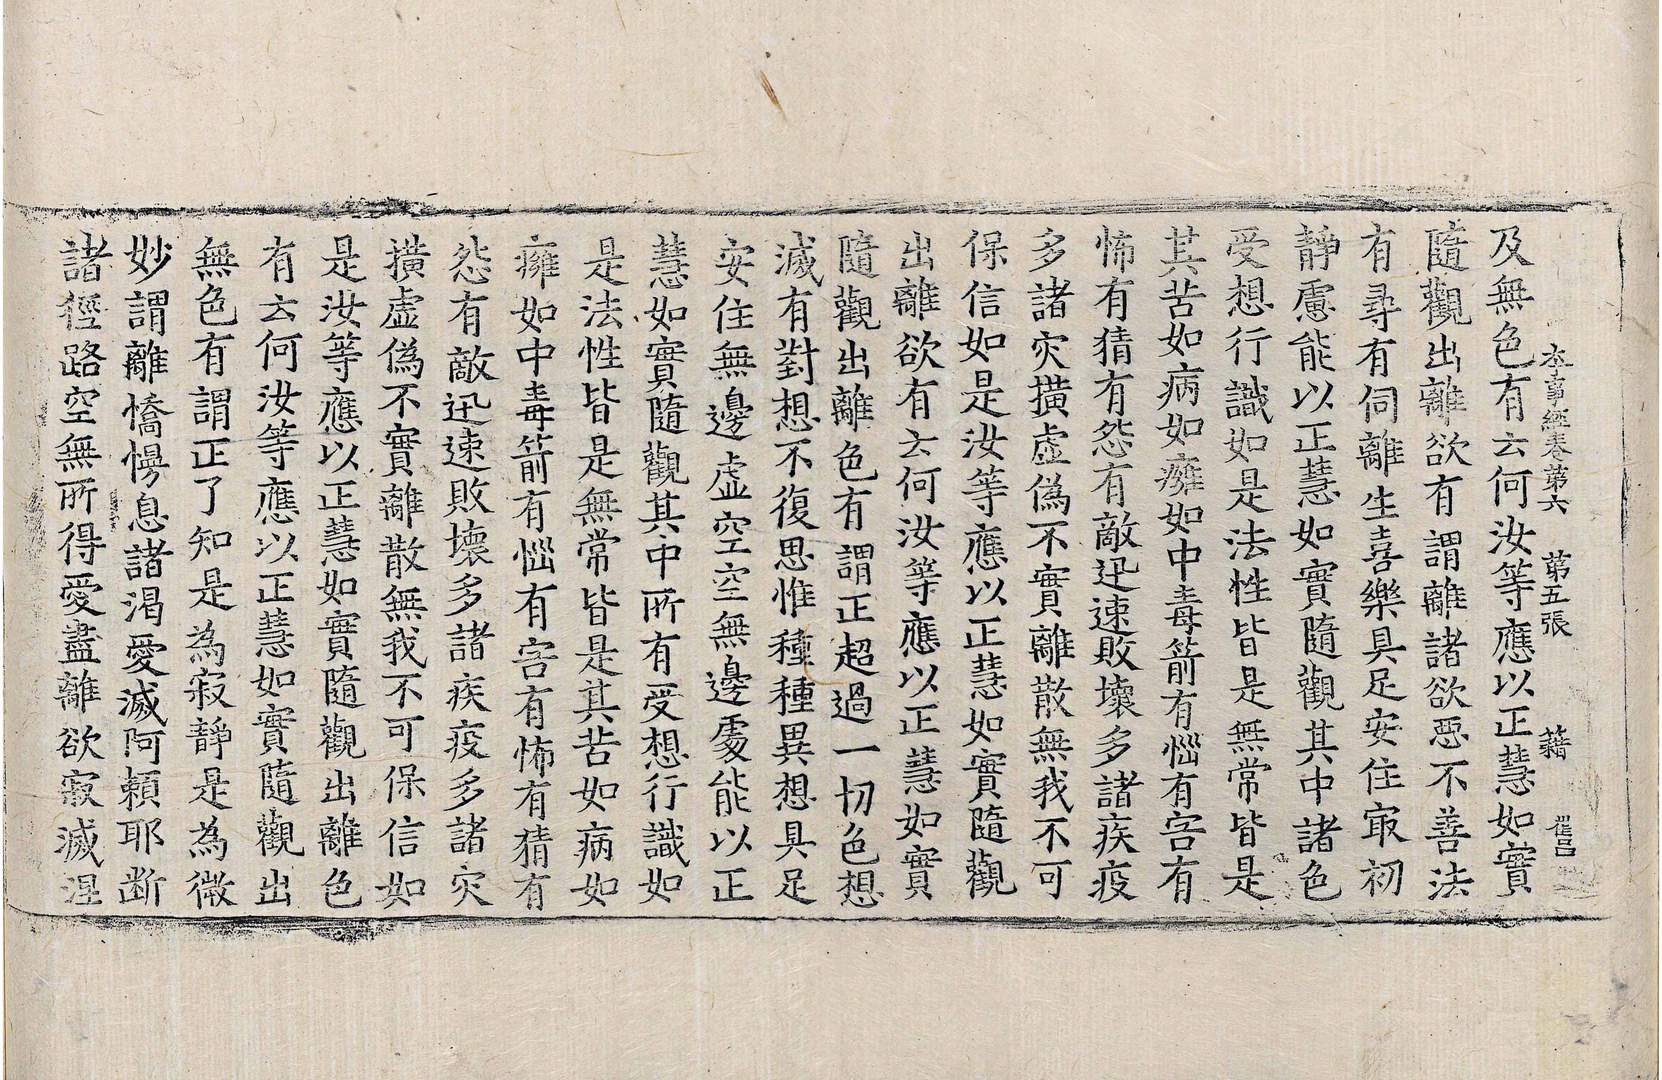 本事經卷第六　第五張　籍　崔呂
及無色有云何汝等應以正慧如實
隨觀出離欲有謂離諸欲惡不善法
有尋有伺離生喜樂具足安住冣初
靜慮能以正慧如實隨觀其中諸色
受想行識如是法性皆是無常皆是
其苦如病如癰如中毒箭有惱有害有
怖有猜有怨有敵迅速敗壞多諸疾疫
多諸灾撗虛偽不實離散無我不可
保信如是汝等應以正慧如實隨觀
出離欲有云何汝等應以正慧如實
隨觀出離色有謂正超過一切色想
滅有對想不復思惟種種異想具足
安住無邊虛空空無邊處能以正
慧如實隨觀其中所有受想行識如
是法性皆是無常皆是其苦如病如
癰如中毒箭有惱有害有怖有猜有
怨有敵迅速敗壞多諸疾疫多諸灾
撗虛偽不實離散無我不可保信如
是汝等應以正慧如實隨觀出離色
有云何汝等應以正慧如實隨觀出
無色有謂正了知是為寂靜是為微
妙謂離憍慢息諸渴愛滅阿賴耶断
諸徑路空無所得愛盡離欲寂滅涅